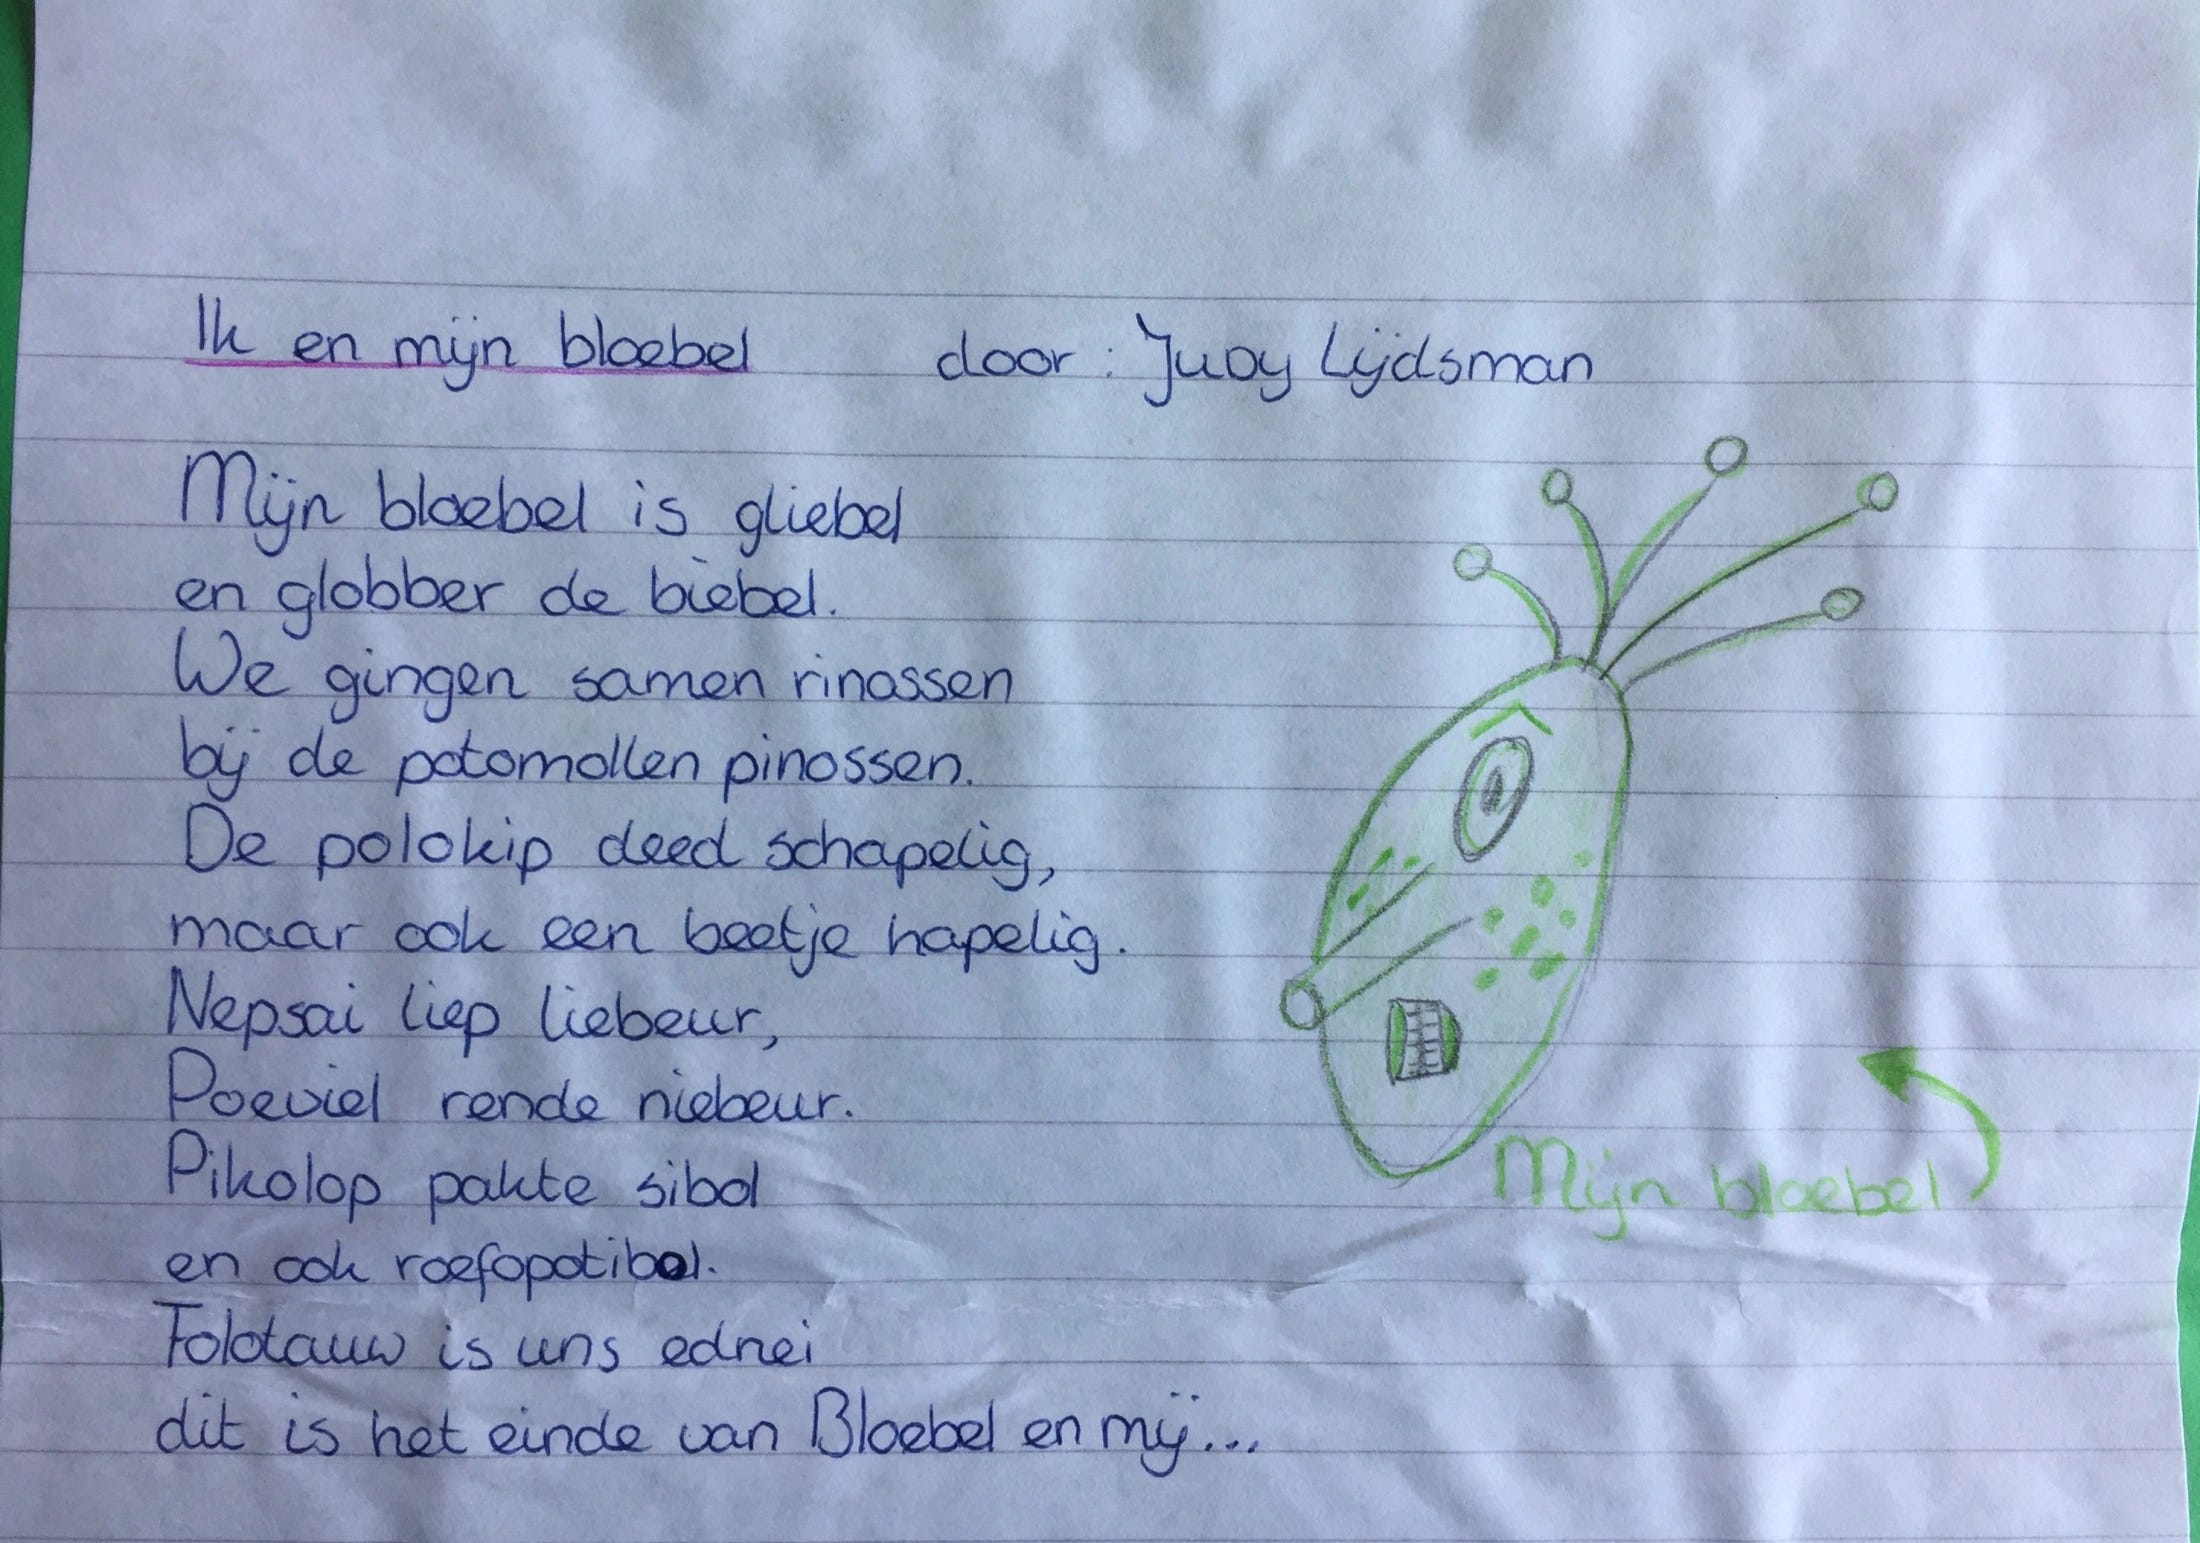 Ik en mijn bloebel door: Judy Lijdsman
Mijn bloebel is gliebel
en globber de biebel.
We gingen samen rinossen
bij de potomollen pinossen.
De polokip deed schapelig,
maar ook een beetje hapelig.
Nepsai liep liebeur,
Poeviel rende niebeur.
Pikolop pakte sibol
en ook roefopotibol.
Folotauw is uns ednei
dit is het einde van Bloebel en mij...
Mijn bloebel